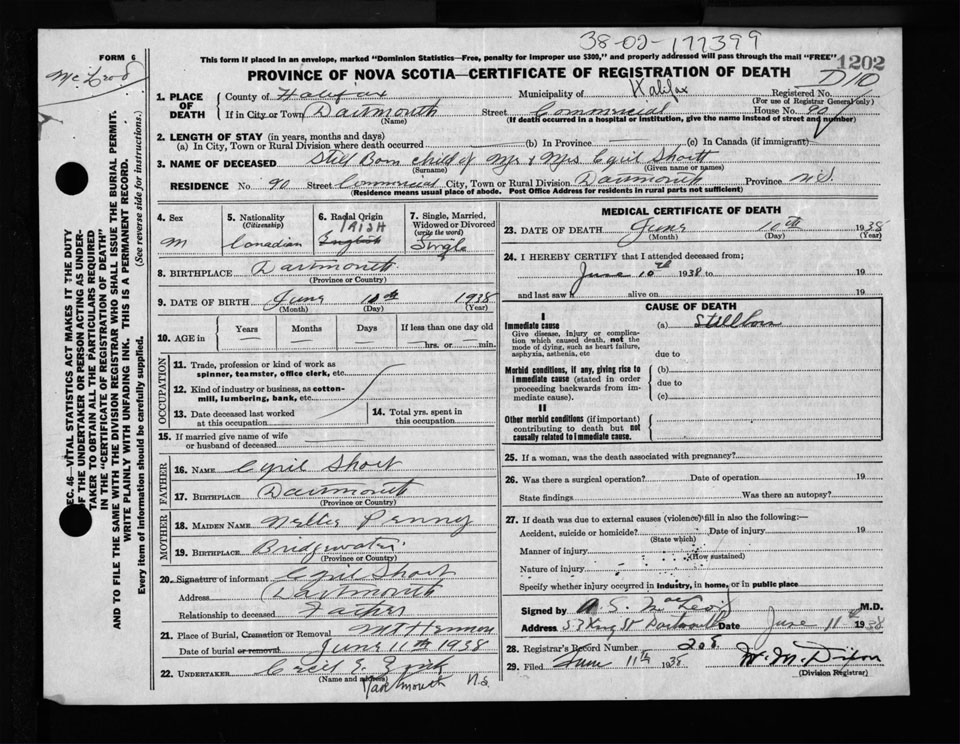 38-02-177399
FORM 6
This form if placed in an envelope, marked "Dominion Statistics—Free, penalty for improper use $300," and properly addressed will pass through the mail "FREE".
1202
PROVINCE OF NOVA SCOTIA—CERTIFICATE OF REGISTRATION OF DEATH
D/10
1. PLACE OF DEATH
County of Halifax Municipality of Halifax Registered No.
(For use of Registrar General only)
If in City or Town Dartmouth Street Commercial House No. 90
(Name) (If death occurred in a hospital or institution, give the name instead of street and number)
2. LENGTH OF STAY (in years, months and days)
(a) In City, Town or Rural Division where death occurred (b) In Province (c) In Canada (if immigrant)
3. NAME OF DECEASED Still Born child of Mr & Mrs Cyril Short
(Surname) (Given name or names)
RESIDENCE No. 90 Street Commercial City, Town or Rural Division Dartmouth Province N.S.
(Residence means usual place of abode. Post Office Address for residents in rural parts not sufficient)
SEC. 46—VITAL STATISTICS ACT MAKES IT THE DUTY
OF THE UNDERTAKER OR PERSON ACTING AS UNDER-
TAKER TO OBTAIN ALL THE PARTICULARS REQUIRED
IN THE "CERTIFICATE OF REGISTRATION OF DEATH"
AND TO FILE THE SAME WITH THE DIVISION REGISTRAR WHO SHALL ISSUE THE BURIAL PERMIT.
WRITE PLAINLY WITH UNFADING INK. THIS IS A PERMANENT RECORD.
Every item of Information should be carefully supplied. (See reverse side for instructions.)
4. Sex
M
5. Nationality
(Citizenship)
Canadian
6. Racial Origin
IRISH
English
7. Single, Married,
Widowed or Divorced
(write the word)
Single
8. BIRTHPLACE Dartmouth
(Province or Country)
9. DATE OF BIRTH June 10th 1938
(Month) (Day) (Year)
10. AGE in
Years Months Days If less than one day old
hrs. or min.
OCCUPATION
11. Trade, profession or kind of work as
spinner, teamster, office clerk, etc.
12. Kind of industry or business, as cotton-
mill, lumbering, bank, etc.
13. Date deceased last worked
at this occupation
14. Total yrs. spent in
this occupation
15. If married give name of wife
or husband of deceased
FATHER
16. NAME Cyril Short
17. BIRTHPLACE Dartmouth
MOTHER
18. MAIDEN NAME Nellie Penny
19. BIRTHPLACE Bridgewater
(Province or Country)
20. Signature of informant Cyril Short
Address Dartmouth
Relationship to deceased Father
21. Place of Burial, Cremation or Removal MT Hermon
Date of burial or removal June 11th 1938
22. UNDERTAKER Cecil E. Zink
(Name and address)
Dartmouth N.S.
MEDICAL CERTIFICATE OF DEATH
23. DATE OF DEATH June 10th 1938
(Month) (Day) (Year)
24. I HEREBY CERTIFY that I attended deceased from;
June 10th 1938 to 19
and last saw h alive on 19
CAUSE OF DEATH
I
Immediate cause
Give disease, injury or complica-
tion which caused death, not the
mode of dying, such as heart failure,
asphyxia, asthenia, etc
(a) Stillborn
due to
Morbid conditions, if any, giving rise to
immediate cause (stated in order
proceeding backwards from im-
mediate cause).
(b)
due to
(c)
II
Other morbid conditions (if important)
contributing to death but not
causally related to immediate cause.
25. If a woman, was the death associated with pregnancy?
26. Was there a surgical operation? Date of operation 19
State findings Was there an autopsy?
27. If death was due to external causes (violence) fill in also the following:—
Accident, suicide or homicide? Date of injury 19
(State which)
Manner of injury
(How sustained)
Nature of injury
Specify whether injury occurred in industry, in home, or in public place
Signed by M.D.
Address 53 King St Date June 11th 1938
28. Registrar's Record Number 208
29. Filed June 11th 1938
(Division Registrar)